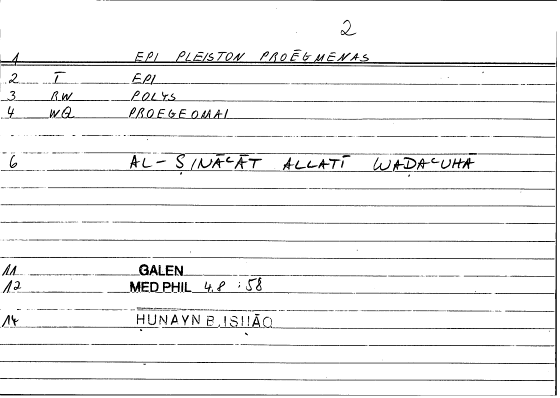 2
1 EPI PLEISTON PROĒGMENAS
2 T EPI
3 RW POLYS
4 WQ PROEGEOMAI
6 AL-ṢINĀʿĀT ALLATĪ WAḌAʿUHĀ
11 GALEN
12 MED PHIL 4,8 :58
14 ḤUNAYN B. ISḤĀQ